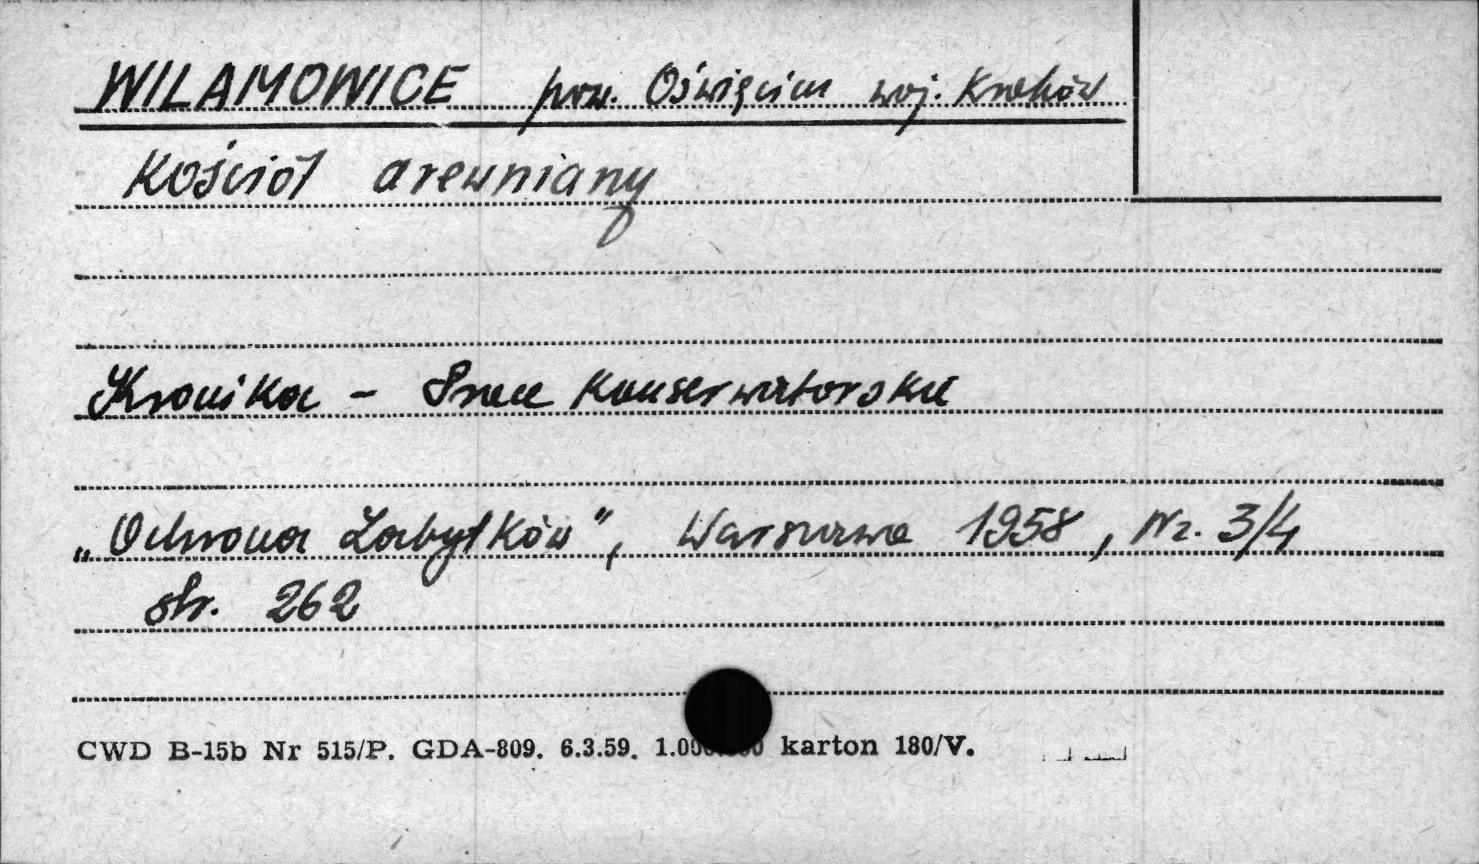 WILAMOWICE pow. Oświęcim woj. Kraków
Kościół drewniany
Kronika – Prace Konserwatorskie
„Ochrona Zabytków", Warszawa 1958, Nr. 3/4
str. 262
CWD B-15b Nr 515/P. GDA-809. 6.3.59. karton 180/V.